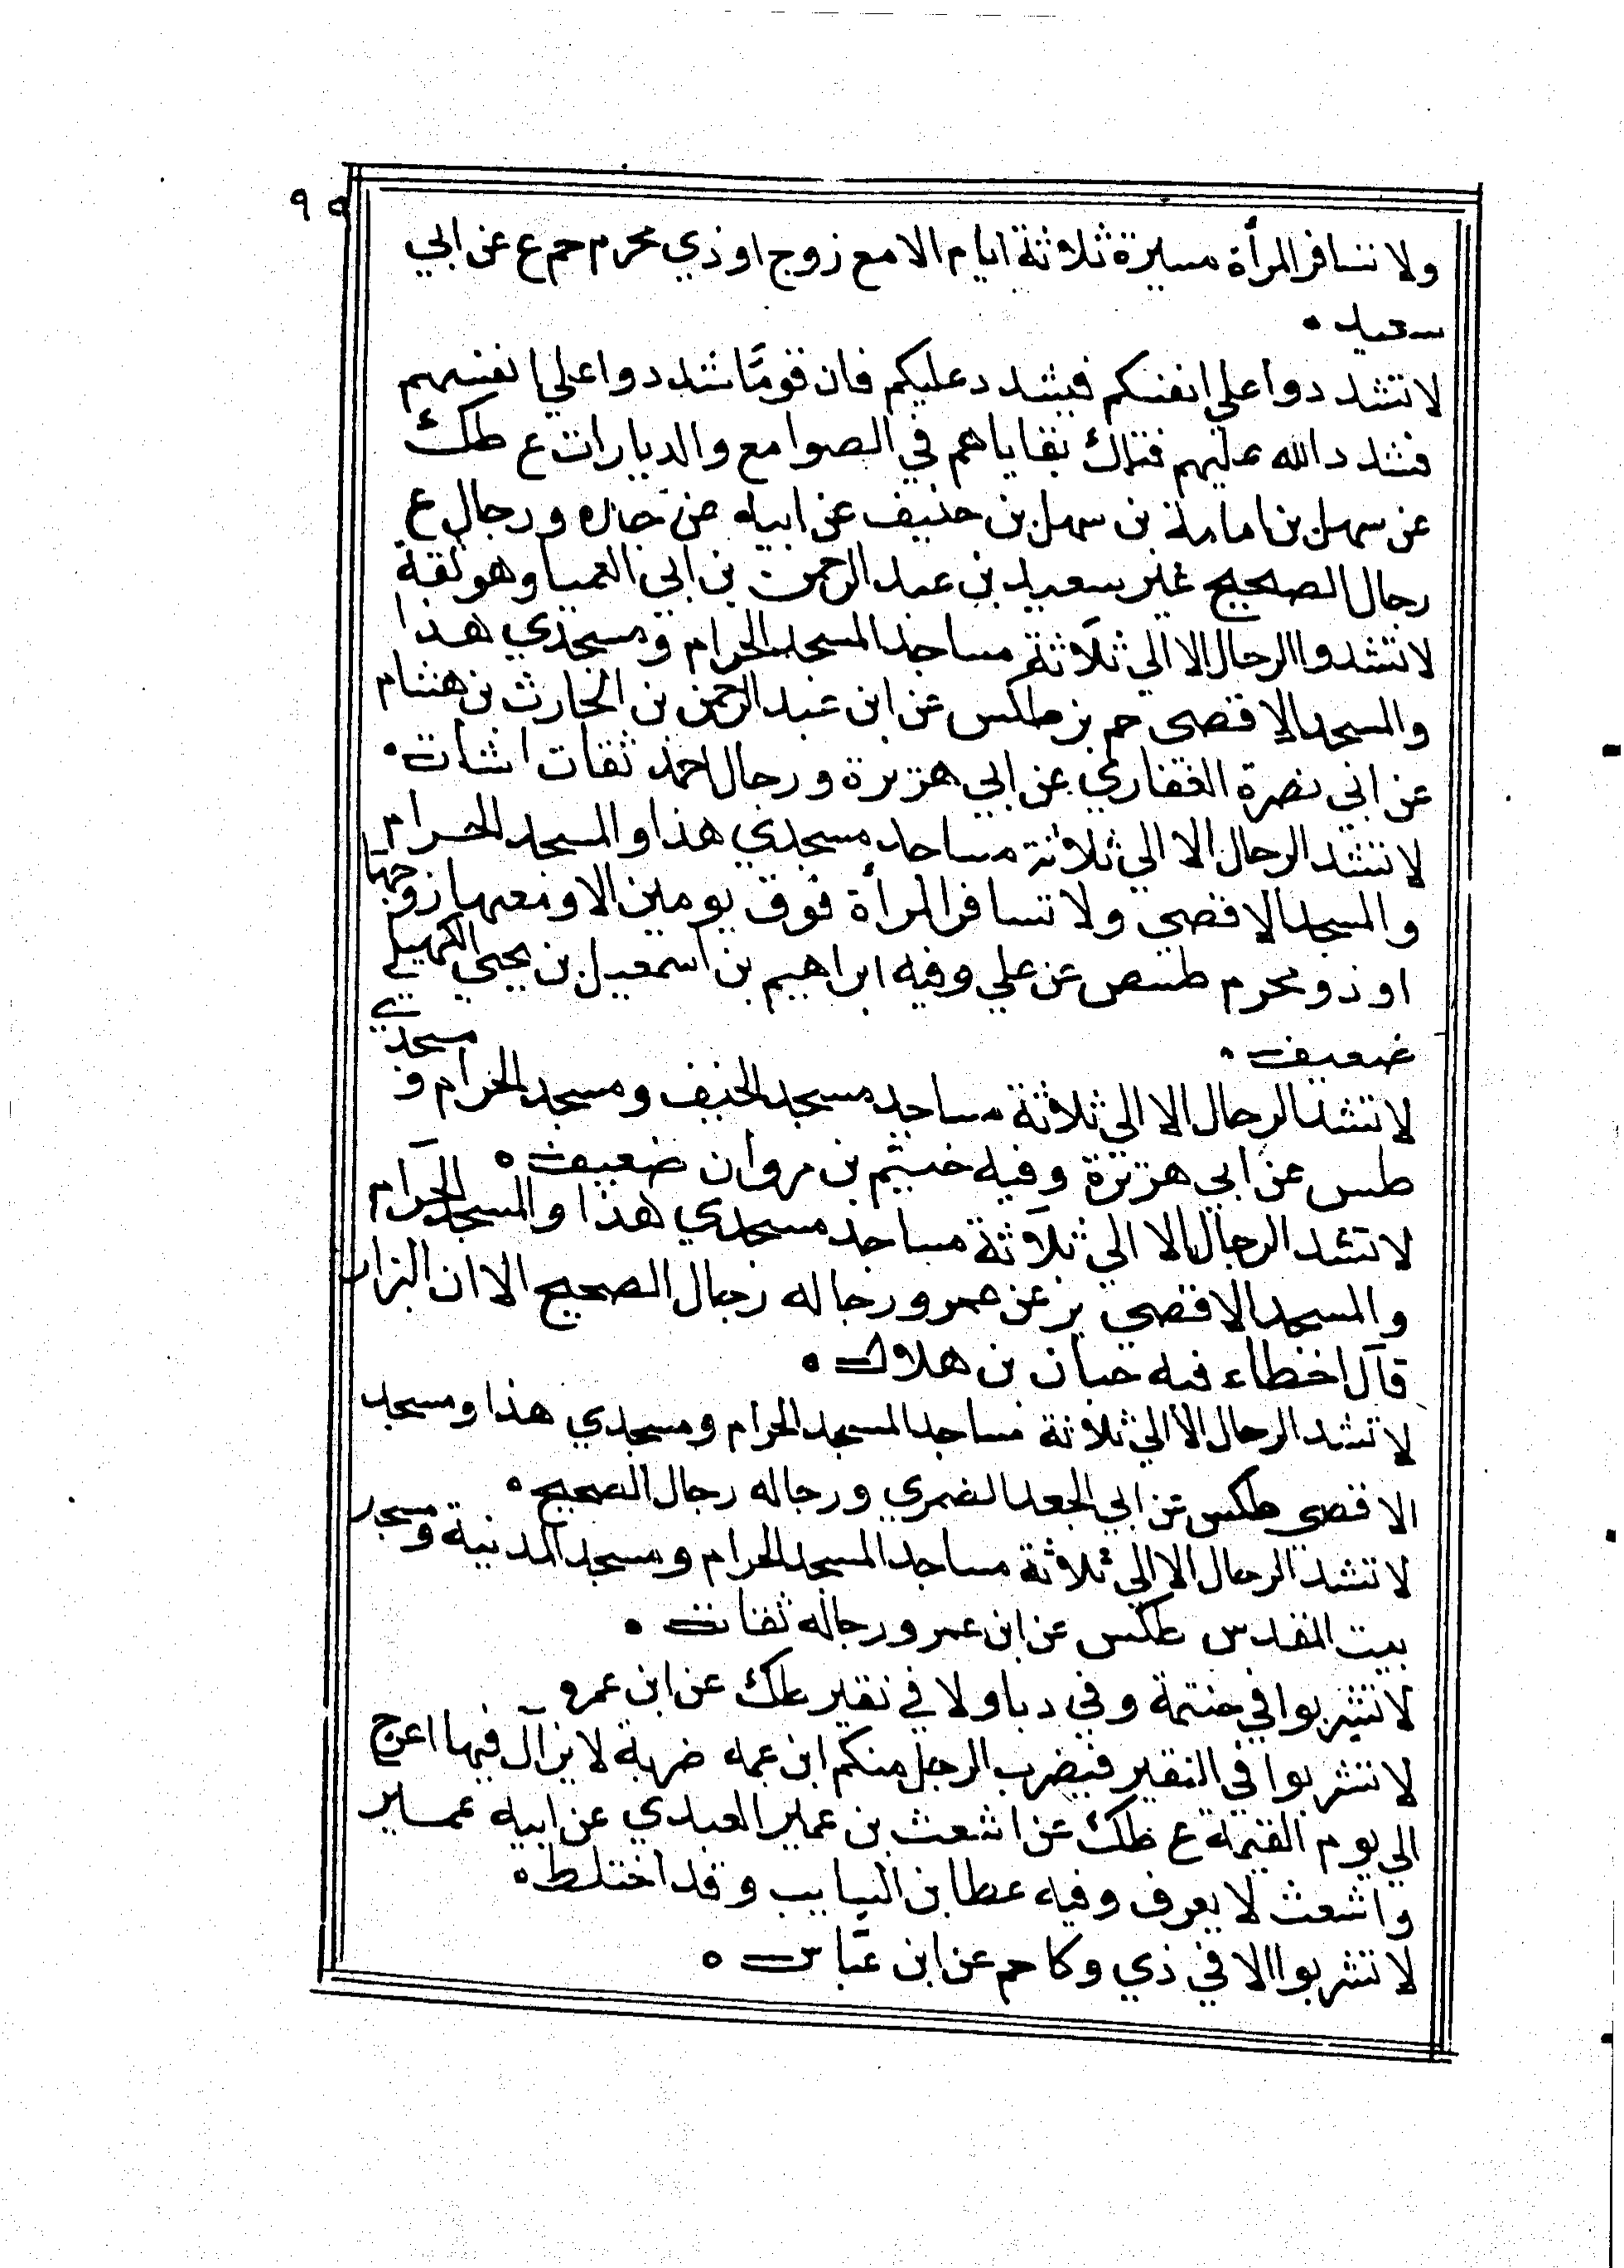 ٩٩
ولا تسافر المرأة مسيرة ثلاثة ايام الا مع زوج او ذي محرم حم ع عن ابي
سعيد ۰
لا تشددوا على انفسكم فيشدد عليكم فان قومًا شددوا على انفسهم
فشدد الله عليهم فتلك بقاياهم في الصوامع والديارات ع طك
عن سهل بن امامة بن سهل بن حنيف عن ابيه عن جده ورجال ع
رجال الصحيح غير سعيد بن عبد الرحمن بن ابي العميا وهو ثقة
لا تشدوا الرحال الا الى ثلاثة مساجد المسجد الحرام ومسجدي هذا
والمسجد الاقصى حم بز طكس عن ابن عبد الرحمن بن الحارث بن هشام
عن ابي نضرة الغفاري عن ابي هريرة ورجال احمد ثقات اثبات ۰
لا تشد الرحال الا الى ثلاثة مساجد مسجدي هذا والمسجد الحرام
والمسجد الاقصى ولا تسافر المرأة فوق يومين الا ومعها زوجها
او ذو محرم طسص عن علي وفيه ابراهيم بن اسمعيل بن يحيى الكهيلي
ضعيف ۰
لا تشد الرحال الا الى ثلاثة مساجد مسجد الخيف ومسجد الحرام ومسجدي
طس عن ابي هريرة وفيه خثيم بن مروان ضعيف ۰
لا تشد الرحال الا الى ثلاثة مساجد مسجدي هذا والمسجد الحرام
والمسجد الاقصى بز عن عمر ورجاله رجال الصحيح الا ان البزار
قال اخطاء فيه حبان بن هلال ۰
لا تشد الرحال الا الى ثلاثة مساجد المسجد الحرام ومسجدي هذا ومسجد
الاقصى طكس عن ابي الجعد الضمري ورجاله رجال الصحيح ۰
لا تشد الرحال الا الى ثلاثة مساجد المسجد الحرام ومسجد المدينة ومسجد
بيت المقدس طكس عن ابن عمر ورجاله ثقات ۰
لا تشربوا في حنتمة وفي دبا ولا في نقير طك عن ابن عمرو
لا تشربوا في النقير فيضرب الرجل منكم ابن عمه ضربة لا يزال فيها اعرج
الى يوم القيمة ع طك عن اشعث بن عمير العبدي عن ابيه عمير
واشعث لا يعرف وفيه عطا بن السايب وقد اختلط ۰
لا تشربوا الا في ذي وكا حم عن ابن عباس ۰